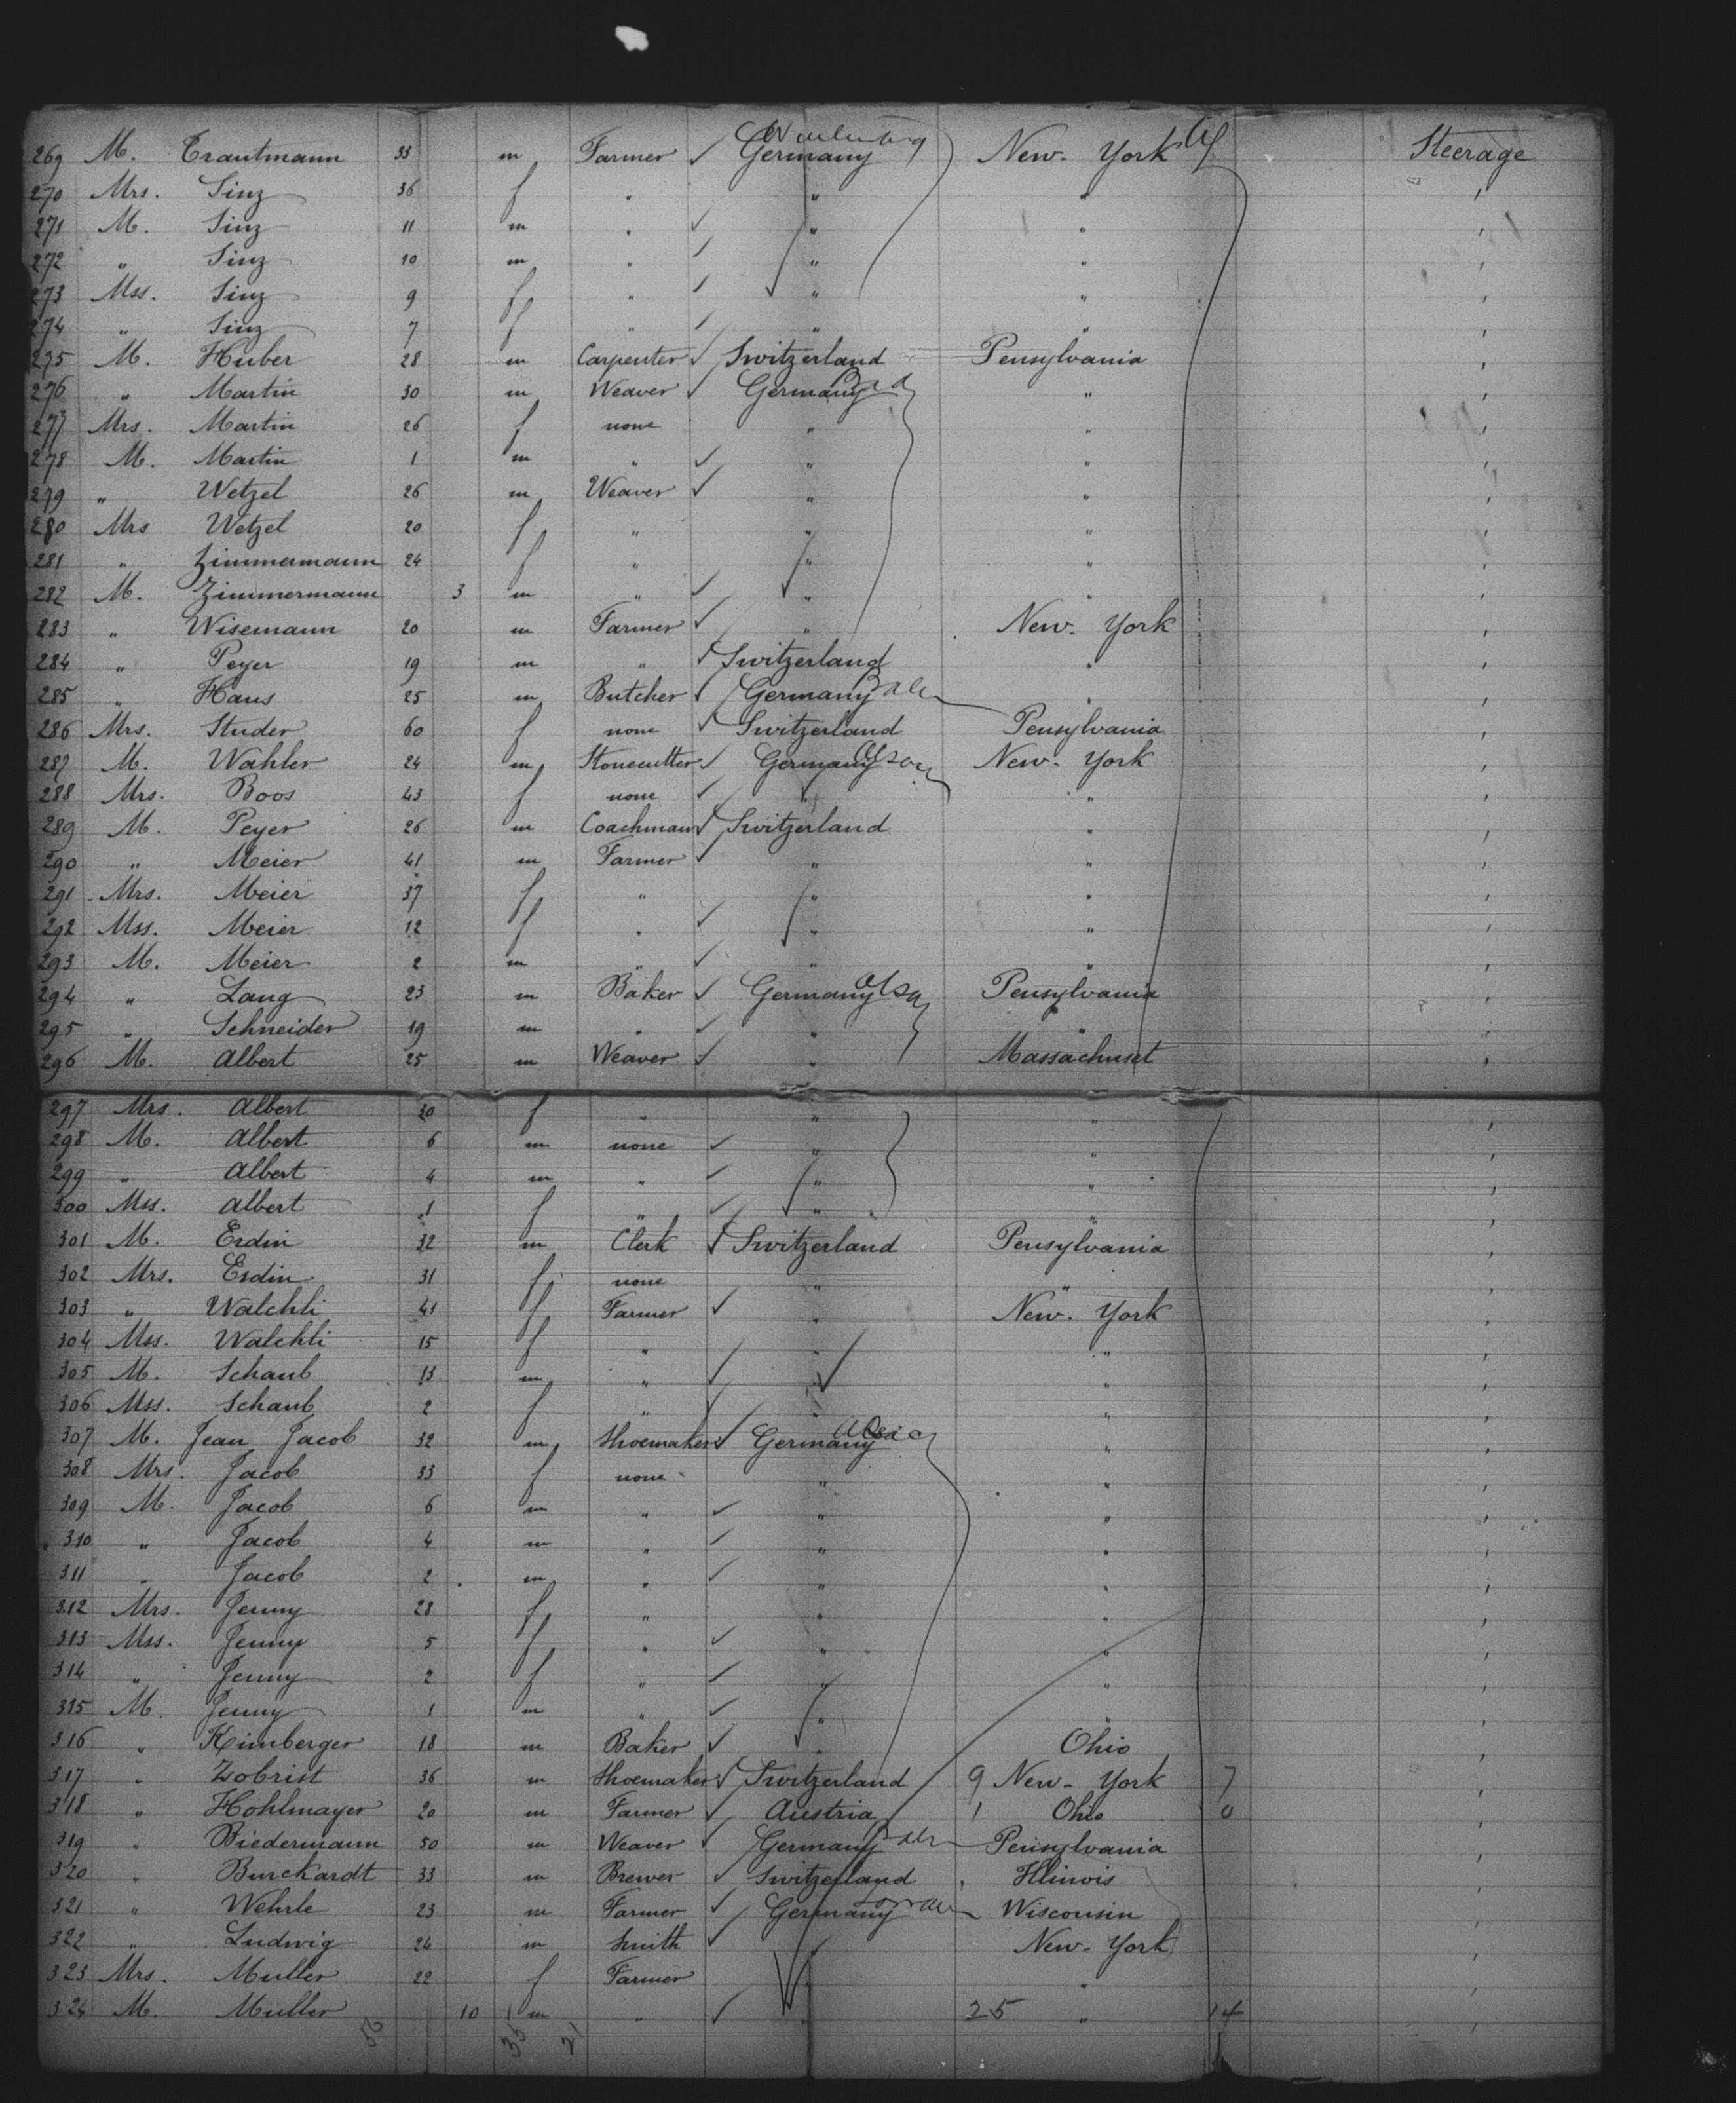 269 M. Trautmann 33 m Farmer ✓ Germany New-York Steerage
270 Mrs. Sinz 36 f " " " "
271 M. Sinz 11 m " ✓ " " "
272 " Sinz 10 m " ✓ " " "
273 Mss. Sinz 9 f " ✓ " " "
274 " Sinz 7 f " ✓ " " "
275 M. Huber 28 m Carpenter ✓ Switzerland Pensylvania "
276 " Martin 30 m Weaver ✓ Germany Bad " "
277 Mrs. Martin 26 f none " " "
278 M. Martin 1 m " ✓ " " "
279 " Wetzel 26 m Weaver ✓ " " "
280 Mrs Wetzel 20 f " " " "
281 " Zimmermann 24 f " " " "
282 M. Zimmermann 3 m " ✓ " " "
283 " Wisemann 20 m Farmer ✓ " New-York "
284 " Peyer 19 m " ✓ Switzerland " "
285 " Haus 25 m Butcher ✓ Germany " "
286 Mrs. Studer 60 f none ✓ Switzerland Pensylvania "
287 M. Wahler 24 m Stonecutter ✓ Germany New-York "
288 Mrs. Boos 43 f none ✓ " " "
289 M. Peyer 26 m Coachman ✓ Switzerland " "
290 " Meier 41 m Farmer ✓ " " "
291 Mrs. Meier 37 f " " " "
292 Mss. Meier 12 f " ✓ " " "
293 M. Meier 2 m " ✓ " " "
294 " Lang 23 m Baker ✓ Germany Pensylvania "
295 " Schneider 19 m " ✓ " " "
296 M. Albert 25 m Weaver ✓ " Massachuset "
297 Mrs. Albert 30 f " " " "
298 M. Albert 6 m none ✓ " " "
299 " Albert 4 m " ✓ " " "
300 Mss. Albert 1 f " ✓ " " "
301 M. Erdin 32 m Clerk ✓ Switzerland Pensylvania "
302 Mrs. Erdin 31 f none " " "
303 " Walchli 41 f Farmer ✓ " New-York "
304 Mss. Walchli 15 f " " " "
305 M. Schaub 13 m " ✓ " " "
306 Mss. Schaub 2 f " ✓ " " "
307 M. Jean Jacob 32 m Shoemaker ✓ Germany " "
308 Mrs. Jacob 33 f none " " "
309 M. Jacob 6 m " ✓ " " "
310 " Jacob 4 m " ✓ " " "
311 " Jacob 2 m " ✓ " " "
312 Mrs. Jenny 28 f " " " "
313 Mss. Jenny 5 f " ✓ " " "
314 " Jenny 2 f " ✓ " " "
315 M. Jenny 1 m " ✓ " " "
316 " Kimberger 18 m Baker ✓ " Ohio "
317 " Zobrist 36 m Shoemaker ✓ Switzerland 9 New-York 7 "
318 " Hohlmayer 20 m Farmer ✓ Austria 1 Ohio 0 "
319 " Biedermann 50 m Weaver ✓ Germany Pensylvania "
320 " Burckardt 33 m Brewer ✓ Switzerland Illinois "
321 " Wehrle 23 m Farmer ✓ Germany Wisconsin "
322 " Ludwig 24 m Smith ✓ New-York "
323 Mrs. Muller 22 f Farmer " " "
324 M. Muller 10 m " ✓ " 25 " 14 "
35 21